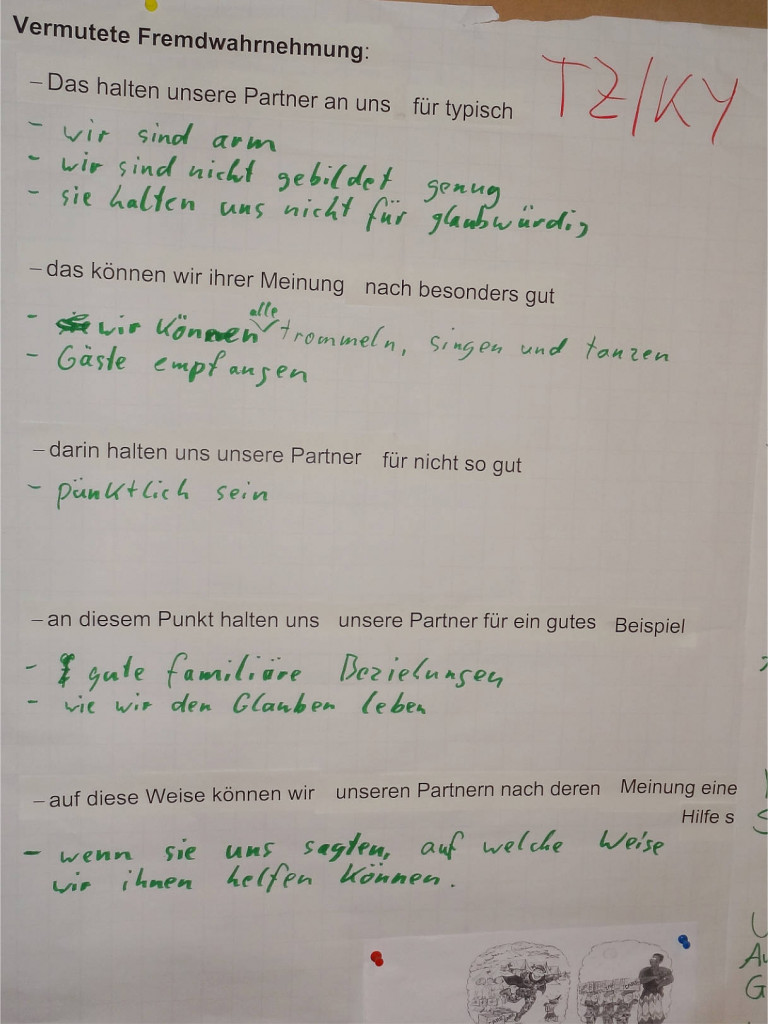 Vermutete Fremdwahrnehmung:
TZ/KY
– Das halten unsere Partner an uns für typisch
- wir sind arm
- wir sind nicht gebildet genug
- sie halten uns nicht für glaubwürdig
– das können wir ihrer Meinung nach besonders gut
alle
- wir können trommeln, singen und tanzen
- Gäste empfangen
– darin halten uns unsere Partner für nicht so gut
- pünktlich sein
– an diesem Punkt halten uns unsere Partner für ein gutes Beispiel
- gute familiäre Beziehungen
- wie wir den Glauben leben
– auf diese Weise können wir unseren Partnern nach deren Meinung eine
Hilfe s
- wenn sie uns sagten, auf welche Weise
wir ihnen helfen können.